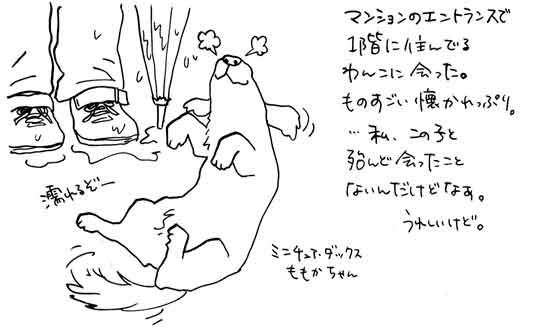 マンションのエントランスで
1階に住んでる
わんこに会った。
ものすごい懐かれっぷり。
…私、この子と
殆んど会ったこと
ないんだけどなぁ。
うれしいけど。
濡れるぞー
ミニチュア・ダックス
ももかちゃん